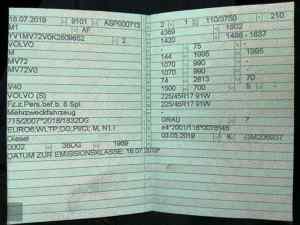 18.07.2019 9101 ASP000713
M1 AF
YV1MV72V0K2609652 2
VOLVO
MV72
MV72V0
V40
VOLVO (S)
Fz.z.Pers.bef.b. 8 Spl.
Mehrzweckfahrzeug
715/2007*2018/1832DG
EURO6,WLTP,DG,PI/CI, M, N1 I
Diesel
0002 36DG 1969
DATUM ZUR EMISSIONSKLASSE: 18.07.2019
2 1 110/3750 210
4369 1802
1420 1498 - 1637
- 75 -
144 1995 1995
1070 990 - -
1070 990 - -
74 2813 70
1500 700 5 -
225/45R17 91W
225/45R17 91W
-
GRAU 7
e4*2001/116*0076*45
03.05.2019 K